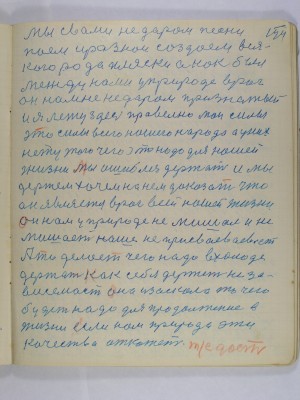 мы с вами не даром песни
поем и разной создаем вся-
кого рода пляски а как был
между нами и природе враг
он нам не даром признатый
и я лету здесь правельно мои силы
это силы всего нашего народа а у них
нету того чего это надо для нашей
жизни мы ошиблис держат и мы
держем хочем на нем доказать что
он является враг всей нашей жизни
он нам у природе не мишал и не
мишает наше не присваеваемост
А то делает чего надо в
держат как себя держет неза-
висемаст она изаколо то чего
будет надо для продолжение в
жизни если нам природа эти
качества откажет.